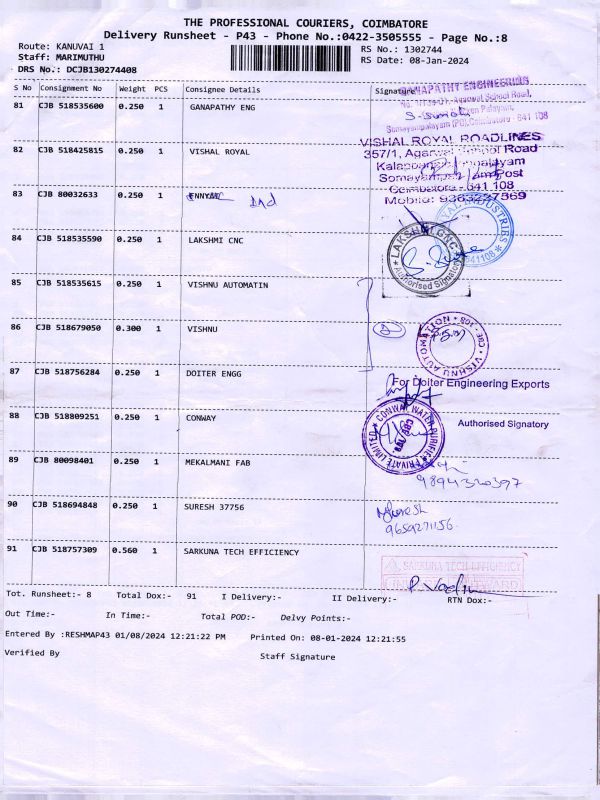 THE PROFESSIONAL COURIERS, COIMBATORE
Delivery Runsheet - P43 - Phone No.:0422-3505555 - Page No.:8
Route: KANUVAI 1
Staff: MARIMUTHU
DRS No.: DCJB130274408
RS No.: 1302744
RS Date: 08-Jan-2024
S No Consignment No Weight PCS Consignee Details Signature
81 CJB 518535600 0.250 1 GANAPATHY ENG
GANAPATHY ENGINEERING
82 CJB 518425815 0.250 1 VISHAL ROYAL
VISHAL ROYAL ROADLINES
357/1, Agarwal School Road
Somayampalayam Post
Coimbatore - 641 108
83 CJB 80032633 0.250 1
84 CJB 518535590 0.250 1 LAKSHMI CNC
LAKSHMI CNC
Authorised Signatory
INDUSTRIES
641108
85 CJB 518535615 0.250 1 VISHNU AUTOMATIN
86 CJB 518679050 0.300 1 VISHNU
2
VISHNU AUTOMATION
87 CJB 518756284 0.250 1 DOITER ENGG
For Doiter Engineering Exports
Authorised Signatory
88 CJB 518809251 0.250 1 CONWAY
CONWAY WATER PURIFIER PRIVATE LIMITED
89 CJB 80098401 0.250 1 MEKALMANI FAB
9894320397
90 CJB 518694848 0.250 1 SURESH 37756
Suresh
9659271156
91 CJB 518757309 0.560 1 SARKUNA TECH EFFICIENCY
SARKUNA TECH EFFICIENCY
Tot. Runsheet:- 8 Total Dox:- 91 I Delivery:- II Delivery:- RTN Dox:-
Out Time:- In Time:- Total POD:- Delvy Points:-
Entered By :RESHMAP43 01/08/2024 12:21:22 PM Printed On: 08-01-2024 12:21:55
Verified By Staff Signature